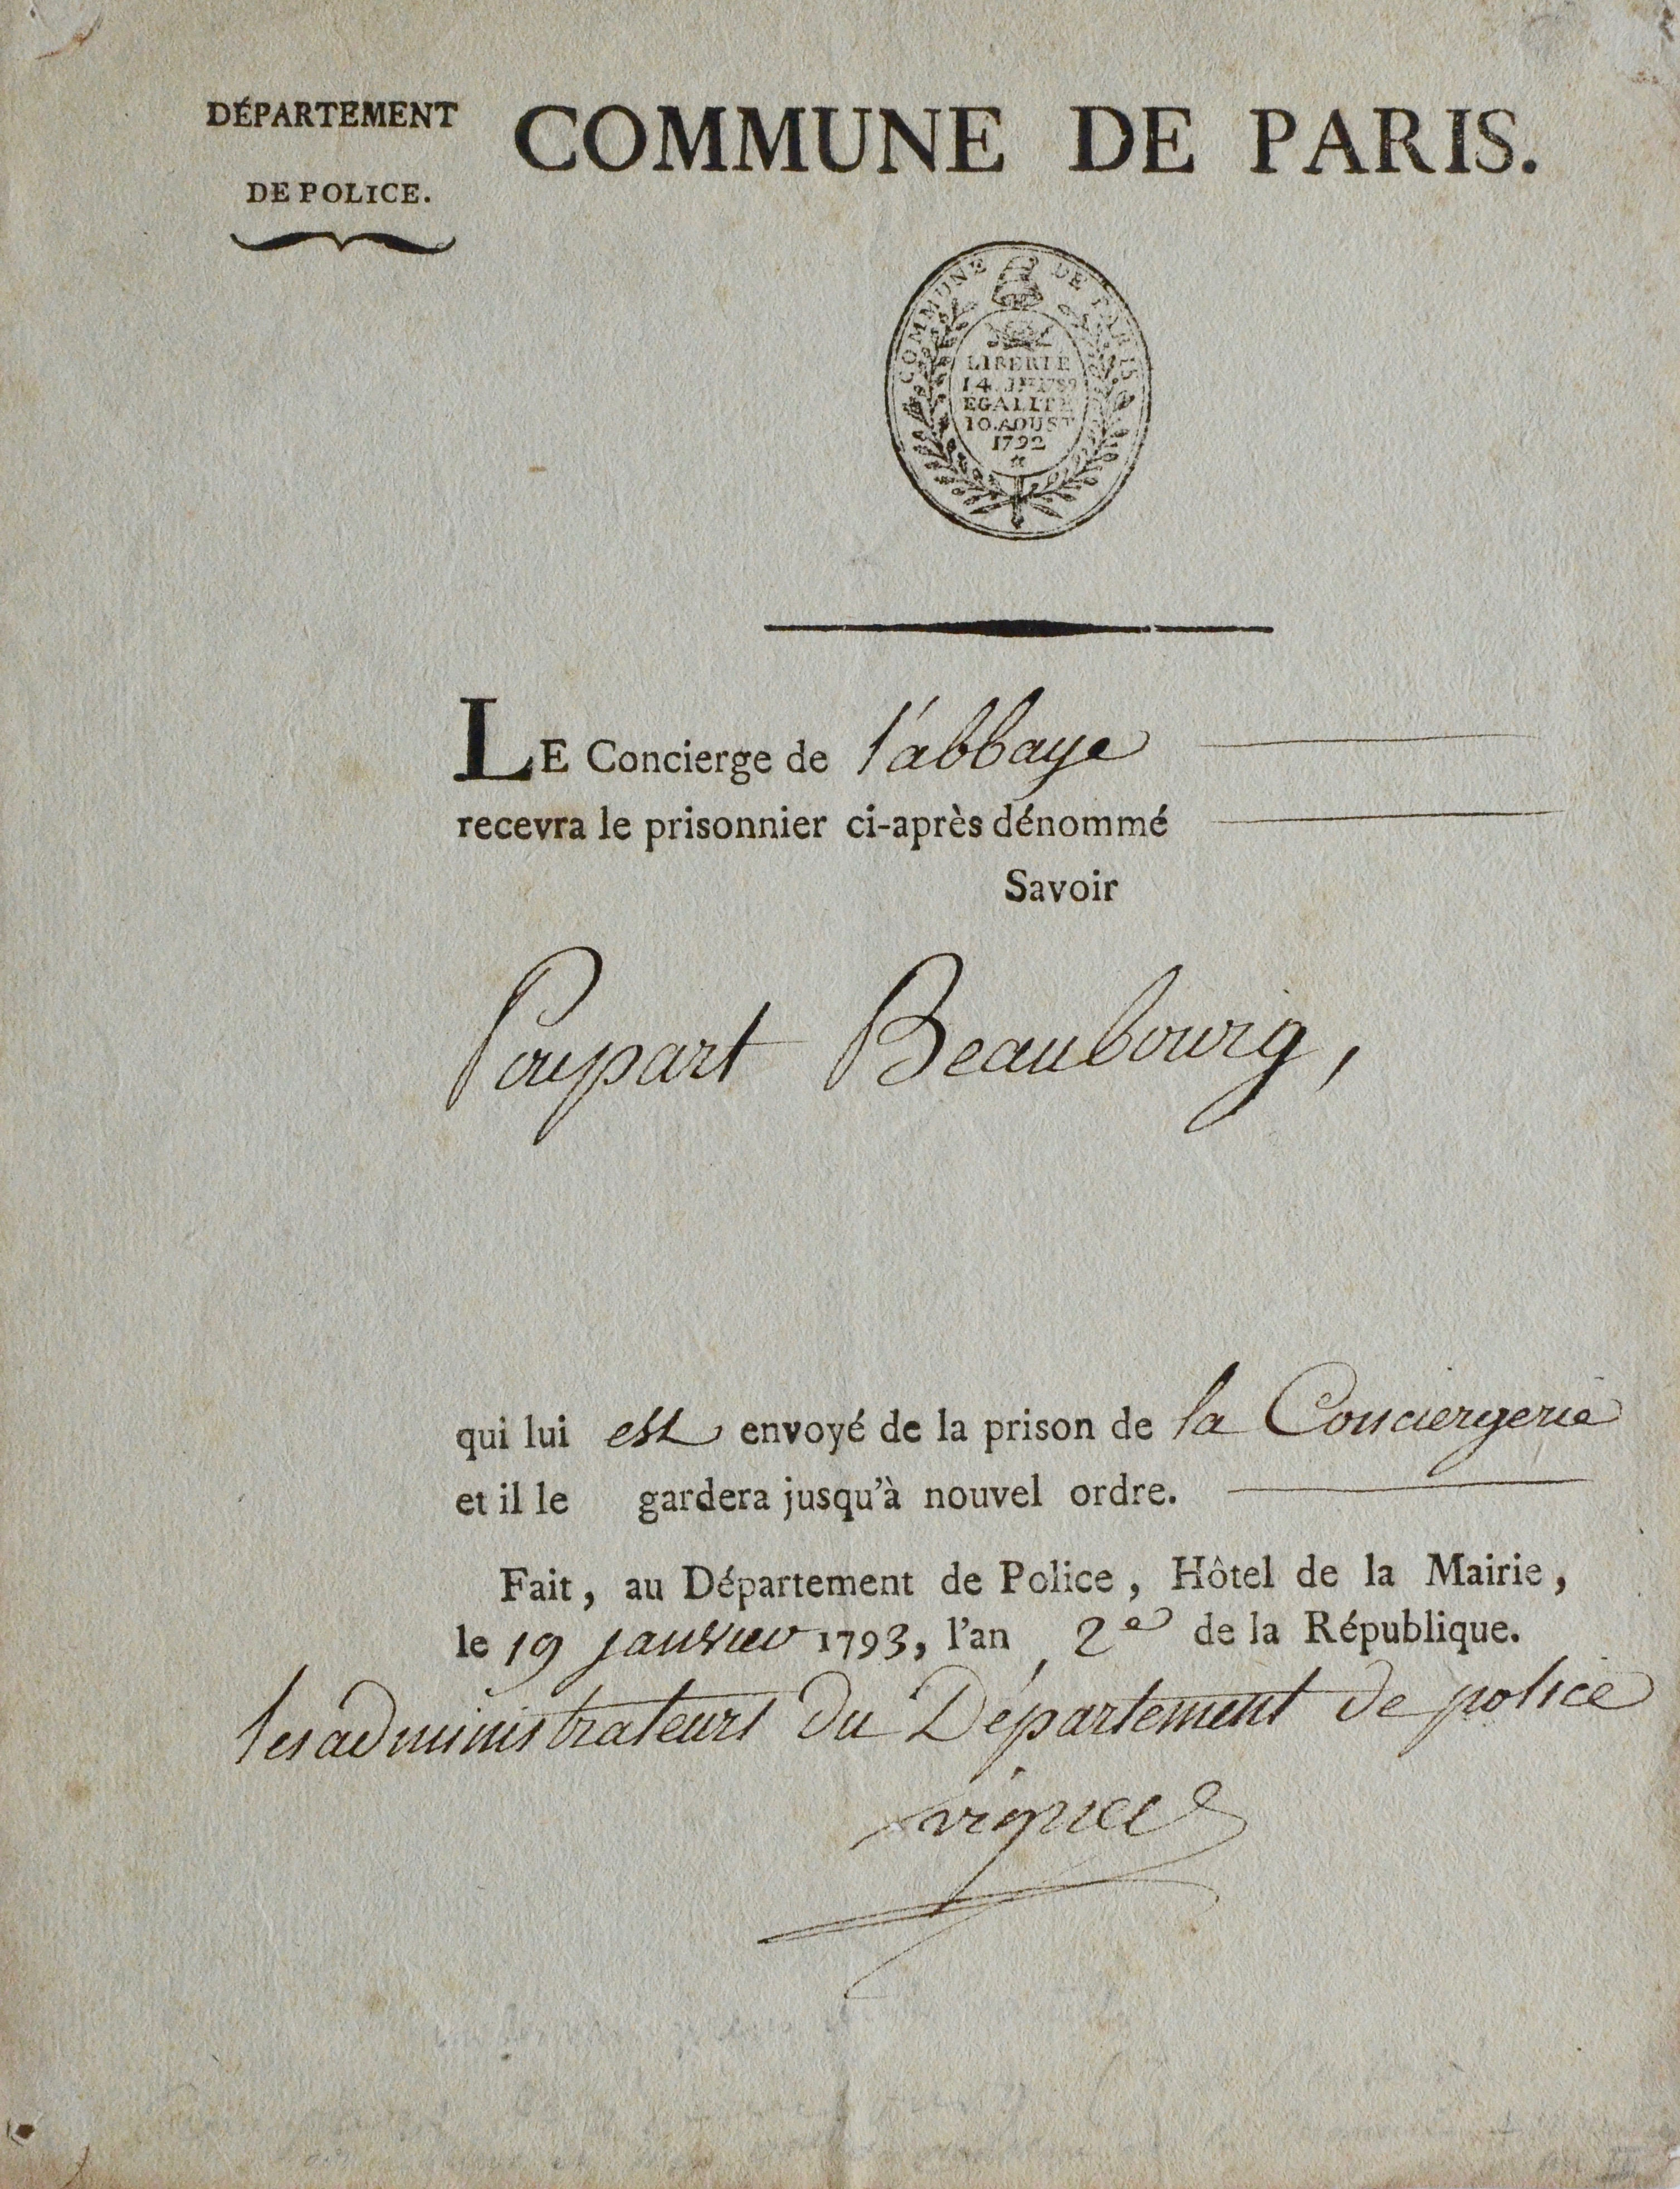 DÉPARTEMENT
DE POLICE.
COMMUNE DE PARIS.
COMMUNE DE PARIS
LIBERTE
14 JET 1789
EGALITE
10 AOUST
1792
LE Concierge de l'abbaye
recevra le prisonnier ci-après dénommé
Savoir
Poupart Beaubourg,
qui lui est envoyé de la prison de la Conciergerie
et il le gardera jusqu'à nouvel ordre.
Fait, au Département de Police, Hôtel de la Mairie,
le 19 janvier 1793, l'an 2e de la République.
les administrateurs du Département de police